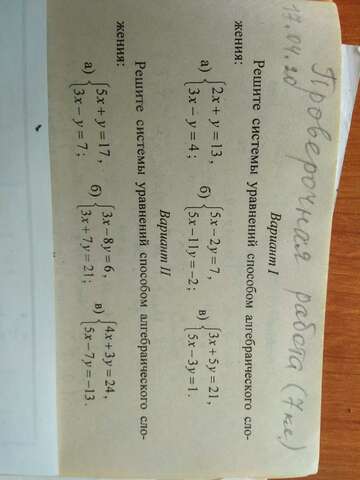 Проверочная работа (7 кл.)
17.04.20
Вариант I
Решите системы уравнений способом алгебраического сло-
жения:
а) {2x + y = 13, б) {5x − 2y = 7, в) {3x + 5y = 21,
3x − y = 4; 5x − 11y = −2; 5x − 3y = 1.
Вариант II
Решите системы уравнений способом алгебраического сло-
жения:
а) {5x + y = 17, б) {3x − 8y = 6, в) {4x + 3y = 24,
3x − y = 7; 3x + 7y = 21; 5x − 7y = −13.